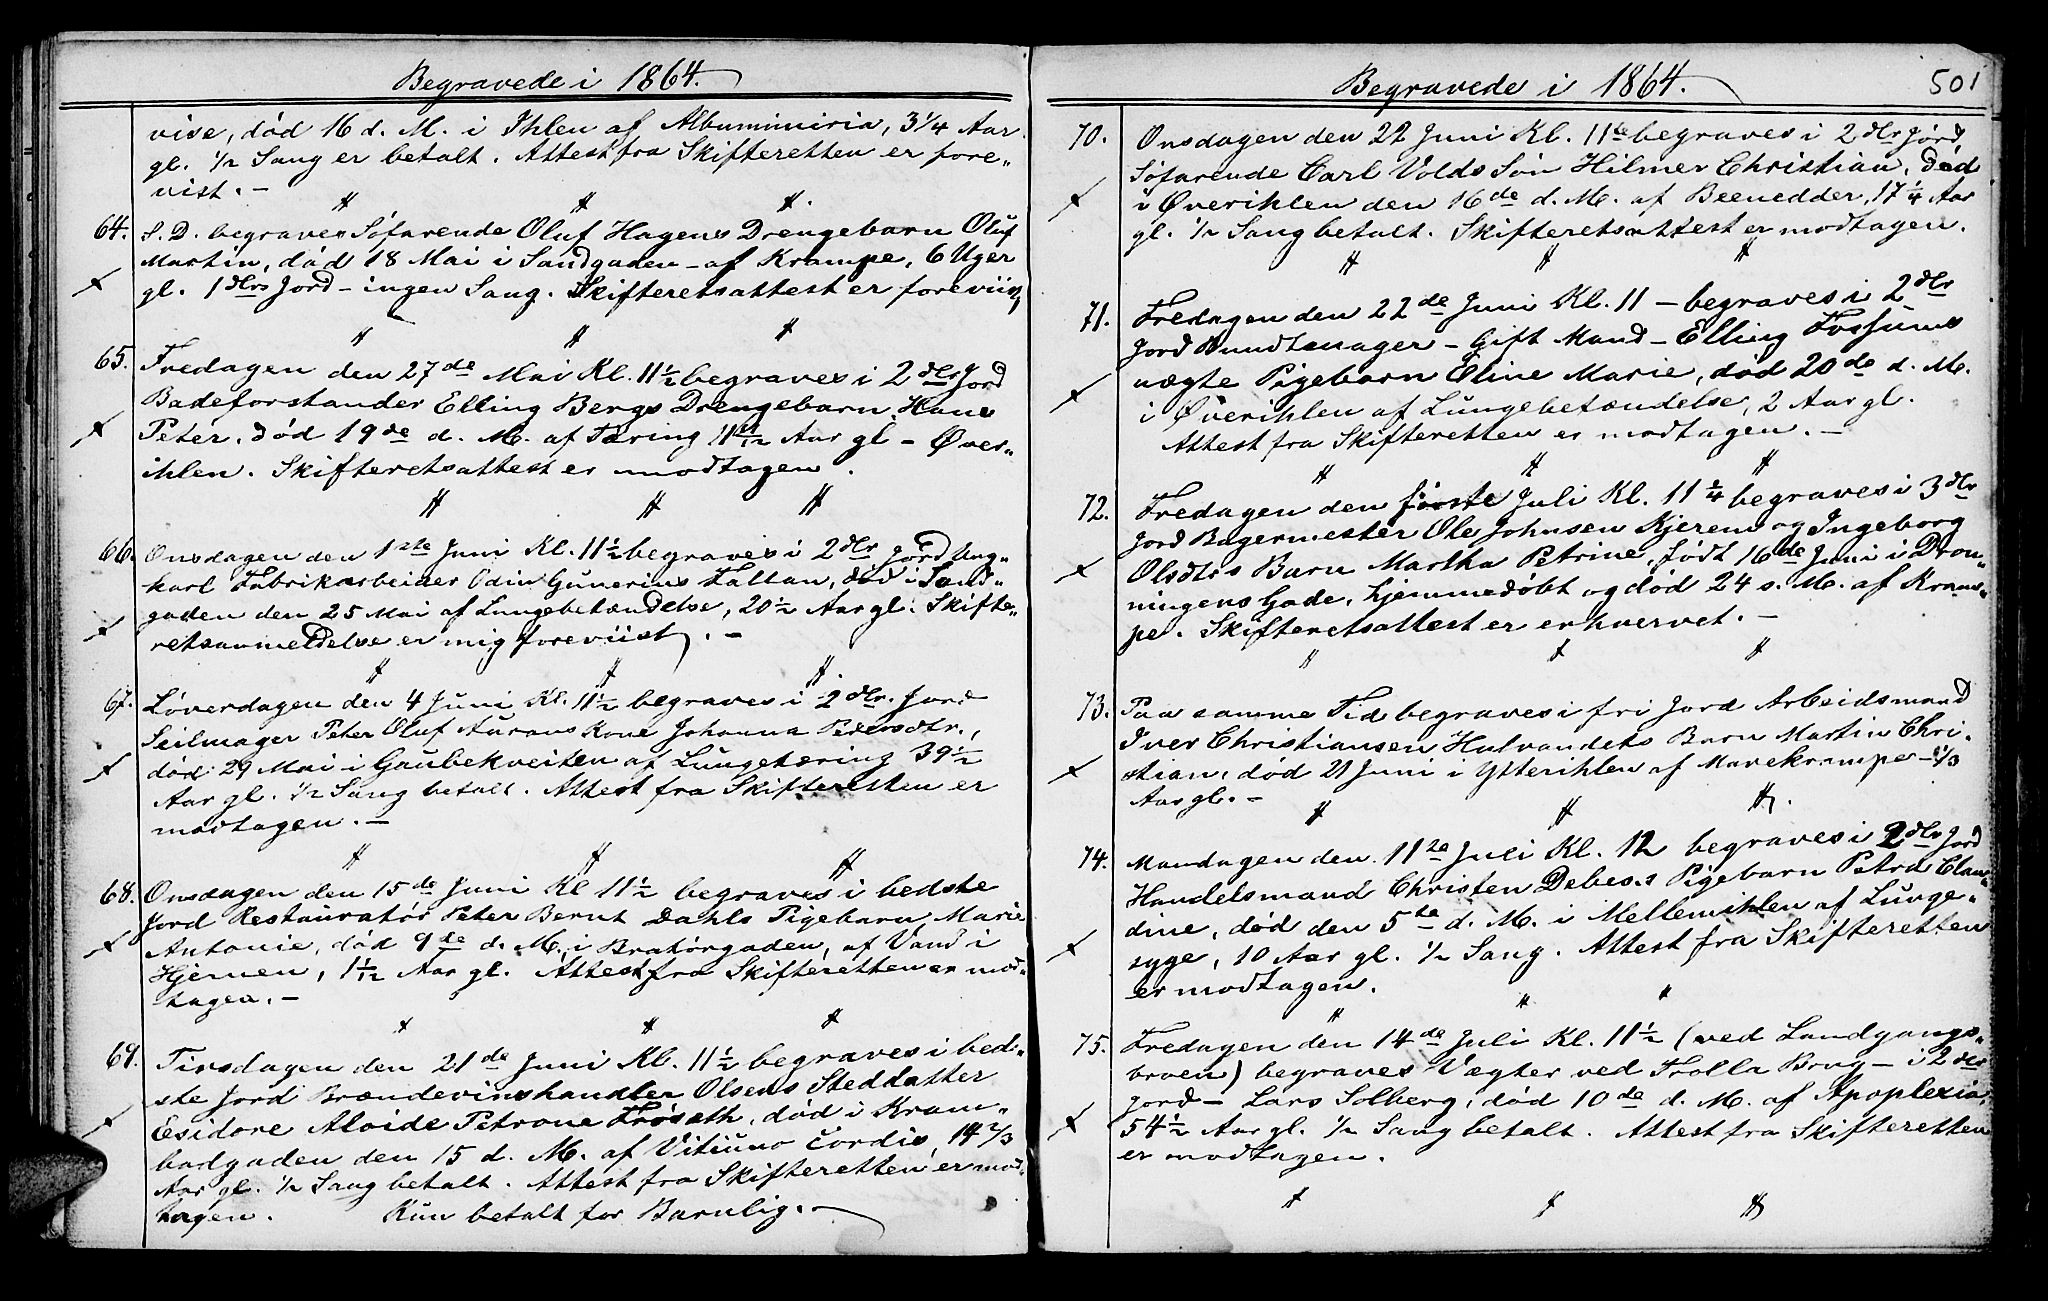 Begravede i 1864.
vise, død 16 d. M. i Ihlen af Albuminiria, 3 1/4 Aar
gl. 1/2 Sang er betalt. Attest fra Skifteretten er fore„
vist. –
64. S. D. begraves Søfarende Oluf Hagens Drengebarn Oluf
Martin, død 18 Mai i Sandgaden – af Krampe, 6 Uger
gl. 1 dlrs Jord – ingen Sang. Skifteretsattest er foreviist,
65. Fredagen den 27de Mai Kl. 11 1/2 begraves i 2 dlr Jord
Badeforstander Elling Bergs Drengebarn Hans
Peter, død 19de d. M. af Tæring 11/12 Aar gl – Øver„
ihlen. Skifteretsattest er modtagen.
66. Onsdagen den 1ste Juni Kl. 11 1/2 begraves i 2 dlr Jord Ung„
karl Fabrikarbeider Odin Gunerius Faltan, død i Sand„
gaden den 25 Mai af Lungebetændelse, 20 1/2 Aar gl. Skifte„
retsanmeldelse er mig foreviist. –
67. Løverdagen den 4 Juni Kl. 11 1/2 begraves i 2 dlr. Jord
Seilmager Peter Oluf Aunans Kone Johanna Pedersdtr.,
død 29 Mai i Gaubekveiten af Lungetæring 39 1/2
Aar gl. 1/2 Sang betalt. Attest fra Skifteretten er
modtagen. –
68. Onsdagen den 15de Juni Kl 11 1/2 begraves i bedste
Jord Restauratør Peter Bernt Dahls Pigebarn Marie
Antonie, død 9de d. M. i Bratørgaden, af Vand i
Hjernen, 1 1/12 Aar gl. Attest fra Skifteretten er mod„
tagen. –
69. Tirsdagen den 21de Juni Kl. 11 1/2 begraves i bed„
ste Jord Brændevinshandler Olsens Steddatter
Esidore Aloide Petrone Frøseth, død i Kram„
badgaden den 15 d. M. af Vitiuno Cordis, 14 2/3
Aar gl. 1/2 Sang betalt. Attest fra Skifteretten er mod„
tagen. Kun betalt for Barnlig. –
Begravede i 1864.
501
70. Onsdagen den 22 Juni Kl. 11 te begraves i 2 dlr Jord
Søfarende Carl Volds Søn Hilmer Christian, død
i Øverihlen den 16de d. M. af Beenedder, 17 1/4 Aar
gl. 1/2 Sang betalt. Skifteretsattest er modtagen.
71. Fredagen den 22de Juni Kl. 11 – begraves i 2 dlr
Jord Bundtmager – Gift Mand – Elling Fossums
uægte Pigebarn Eline Marie, død 20de d. M.
i Øverihlen af Lungebetændelse, 2 Aar gl.
Attest fra Skifteretten er modtagen. –
72. Fredagen den første Juli Kl. 11 1/4 begraves i 3 dlr
Jord Bagermester Ole Johnsen Kjerem og Ingeborg
Olsdtrs Barn Martha Petrine, født 16de Juni i Dron„
ningens Gade, hjemmedøbt og død 24 s. M. af Kram„
pe. Skifteretsattest er erhvervet. –
73. Paa samme Tid begraves i fri Jord Arbeidsmand
Iver Christiansen Hulvandets Barn Martin Chri„
stian, død 21 Juni i Ytterihlen af Mavekrampe –
Aar gl. –
74. Mandagen den 11te Juli Kl. 12 begraves i 2 dlr Jord
Handelsmand Christen Debes's Pigebarn Petra Clau„
dine, død den 5te d. M. i Mellemihlen af Lunge„
syge, 10 Aar gl. 1/2 Sang. Attest fra Skifteretten
er modtagen.
75. Fredagen den 14de Juli Kl. 11 1/2 (ved Landgangs„
broen) begraves Vægter ved Trolla Brug – i 2 dlr
Jord – Lars Solberg, død 10de d. M. af Apoplexia,
54 1/2 Aar gl. 1/2 Sang betalt. Attest fra Skifteretten
er modtagen.